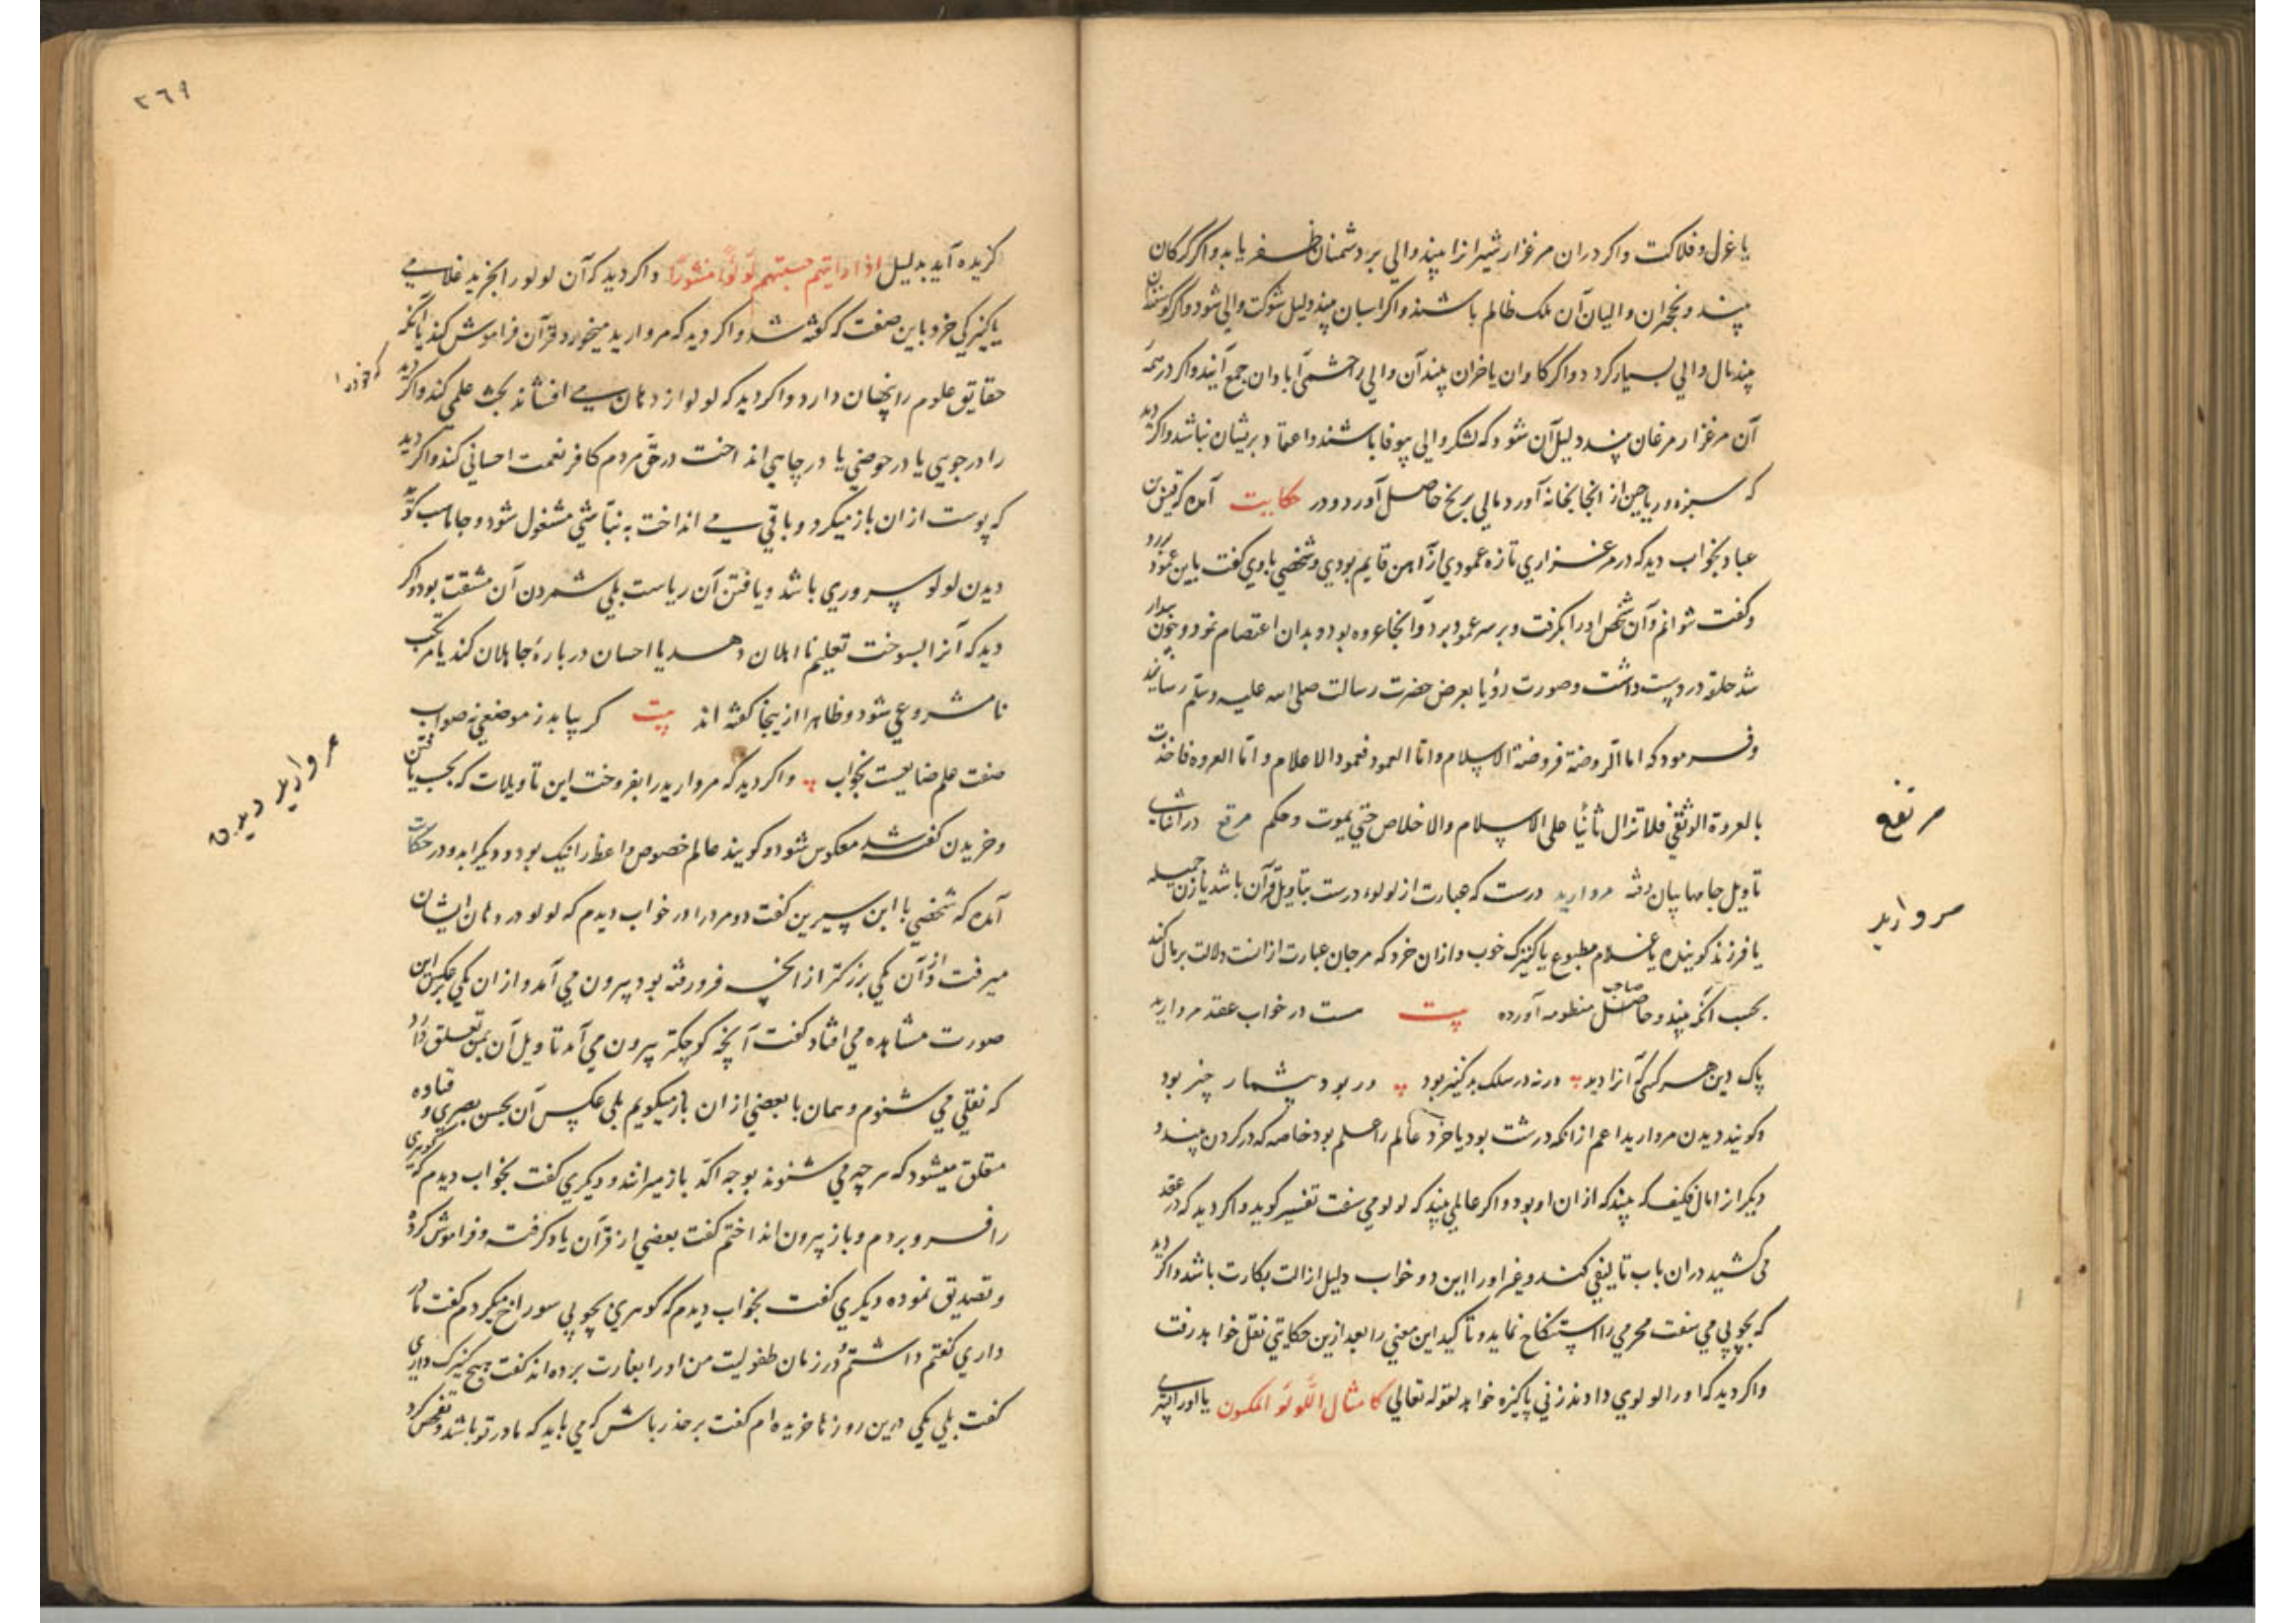 یا غول و فلاکت و اکر دران مرغزار شیرانرا بیند والی بر دشمنان ظفر یابد و اکر گرگان
بیند و نخجیران والیان آن ملک ظالم باشند و اکر اسبان بیند دلیل شوکت والی شود و اکر گوسفندان
بیند مال والی بسیار کردد و اکر کاوان یا خران بیند آن والی را حشمی آبادان جمع آیند و اکر در همه
آن مرغزار مرغان بیند دلیل آن شود که لشکر والی بیوفا باشند و اعتماد بریشان نباشد و اکر دید
که سبزه و ریاحین از انجا بخانه آورد مالی برنج حاصل آورد و در حکایت آمده که قیس بن
عباد بخواب دید که در مرغزاری تازه عمودی از آهن قایم بودی و شخصی با وی کفت باین عمود بر رو
و کفت نتوانم و آن شخص او را بکرفت و بر سر عمود برد و آنجا عروه بود و بدان اعتصام نمود و چون بیدار
شد حلقه در دست داشت و صورت رؤیا بعرض حضرت رسالت صلی الله علیه وسلم رسانید
و فرمود که اما الروضة فروضة الاسلام و اما العمود فعمود الاعلام و اما العروه فاخذت
بالعروة الوثقی فلا تزال ثابتا علی الاسلام والاخلاص حتی یموت و حکم مرقع در اثنای
تاویل جامها بیان رفته مروارید درست که عبارت از لولوء درست بتاویل قرآن باشد یا زن جمیله
یا فرزند کوینده یا غلام مطبوع یا کنیزک خوب و ازان خرد که مرجان عبارت ازانست دلالت بر مال کند
بحسب انکه بیند و صاحب منظومه آورده بیت هست در خواب عقد مروارید
پاک دین هر کسی که آنرا دید ورنه در سلک بد کنیز بود در بود بیشمار چیز بود
و کویند دیدن مروارید اعم از انکه درشت بود یا خرد عالم را علم بود خاصه که در کردن بیند و
دیکر از امال فکیف که بیند که ازان او بود و اکر عالمی بیند که لولو می سفت تفسیر کوید و اکر دید که در عقد
می کشید دران باب تالیفی کند و غیر او را این دو خواب دلیل ازالت بکارت باشد و اکر دید
که بچوبی می سفت محرمی را استنکاح نماید و تأکید این معنی را بعد ازین حکایتی نقل خواهد رفت
و اکر دید که او را لولوی دادند زنی پاکیزه خواهد لقوله تعالی کامثال اللؤلؤ المکنون یا او را پسری
مرتفع
مروارید
٢٦٩
کزیده آید بدلیل اذا رایتهم حسبتهم لؤلؤا منثورا و اکر دید که آن لولو را بخرید غلامی
یا کنیزکی خرد باین صفت که کفته شد و اکر دید که مروارید میخورد قرآن فراموش کند یا آنکه
حقایق علوم را پنهان دارد و اکر دید که لولو از دهان می افشاند بحث علمی کند و اکر دید
که خود را
را در جویی یا در حوضی یا در چاهی انداخت در حق مردم کافر نعمت احسانی کند و اکر دید
که پوست ازان باز میکرد و باقی می انداخت به نباشی مشغول شود و جاماسب کوید
دیدن لولو سروری باشد و یافتن آن ریاست بلی شمردن آن مشقت بود و اکر
دید که آنرا بسوخت تعلیم نااهلان دهد یا احسان در بارهٔ جاهلان کند یا مرتکب
نامشروعی شود و ظاهرا از ینجا کفته اند بیت کر بیابد ز موضعی نه صواب
صفت علم ضایعست بخواب و اکر دید که مروارید را بفروخت این تاویلات که بحسب یافتن
و خریدن کفته شد معکوس شود و کویند عالم خصوص واعظ را نیک بود و دیکر را بد و در حکایت
آمده که شخصی با ابن سیرین کفت دو مرد را در خواب دیدم که لولو در دهان ایشان
میرفت و از آن یکی بزرکتر از انچه فرو رفته بود بیرون می آمد و از ان یکی برعکس این
صورت مشاهده می افتاد کفت آنچه کوچکتر بیرون می آمد تاویل آن بمن تعلق دارد
که نقلی می شنوم و همان با بعضی از ان باز میکویم بلی عکس آن بحسن بصری و قتاده
متعلق میشود که هر چه می شنوند بوجه اکد باز میرانند و دیکری کفت بخواب دیدم که کوهری
را فرو بردم و باز بیرون انداختم کفت بعضی از قرآن یاد کرفته و فراموش کرده
و تصدیق نموده دیکری کفت بخواب دیدم که کوهری بچوبی سوراخ میکردم کفت مادر
داری کفتم داشتم و در زمان طفولیت من او را بغارت برده اند کفت هیچ کنیزک داری
کفت بلی یکی درین روزها خریده ام کفت بر حذر باش که می باید که مادر تو باشد و تفحص کرد
مروارید دیدن